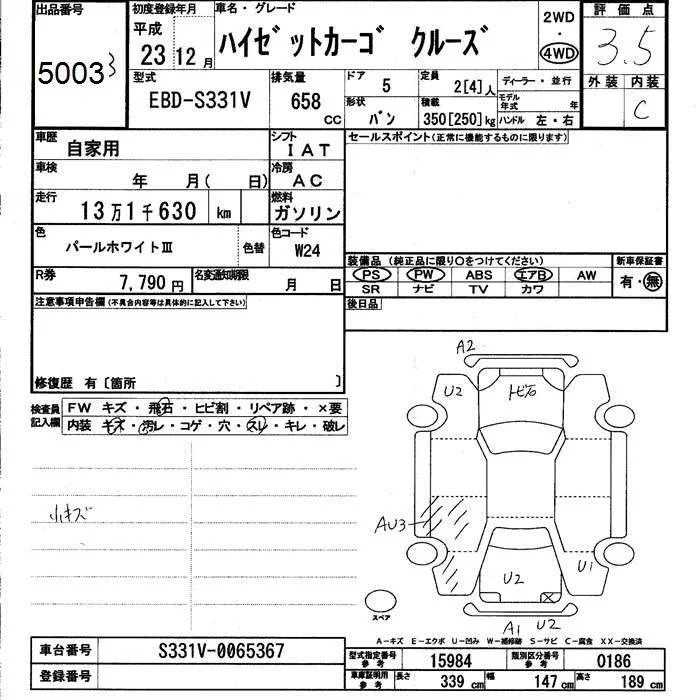 出品番号
初度登録年月
車名・グレード
2WD
・
4WD
評価点
5003
3
平成
23 12月
ハイゼットカーゴ クルーズ
3.5
型式
EBD-S331V
排気量
658
CC
ドア
5
定員
2[4]人
ディーラー・並行
モデル年式 年
形状
バン
積載
350[250]kg
ハンドル 左・右
外装 内装
C
車歴
自家用
シフト
IAT
セールスポイント(正常に機能するものに限ります)
車検
年 月( 日)
冷房
AC
走行
13万1千630 km
燃料
ガソリン
色
パールホワイトⅢ
色替
色コード
W24
装備品 (純正品に限り〇をつけてください)
新車保証書
PS PW ABS エアB AW
有・無
SR ナビ TV カワ
R券
7,790円
名変通知期限
月 日
後日品
注意事項申告欄(不具合内容等は具体的に記入して下さい)
修復歴 有〔箇所 〕
検査員記入欄
FW キズ・飛石・ヒビ割・リペア跡・×要
内装 キズ・汚レ・コゲ・穴・スレ・キレ・破レ
小キズ
A2
U2
トビ石
AU3
U2
U1
A1 U2
スペア
A-キズ E-エクボ U-凹み W-補修跡 S-サビ C-腐食 XX-交換済
車台番号
S331V-0065367
登録番号
型式指定番号
参考
15984
類別区分番号
参考
0186
車庫証明用
参考
長さ
339 cm
幅
147 cm
高さ
189 cm